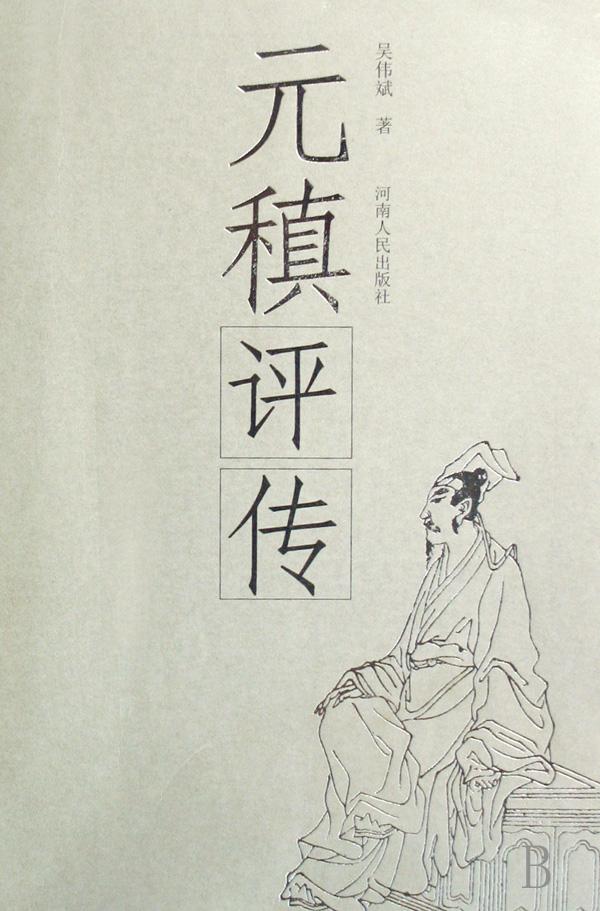 吴伟斌 著 河南人民出版社
元稹评传
B